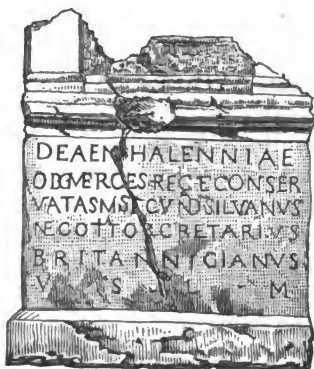 DEAE N HALENNIAE
OB MERCES RECTE CONSER
VATAS M SECVND SILVANVS
NEGOTTOR CRETARIVS
BRITANNICIANVS
V S L M